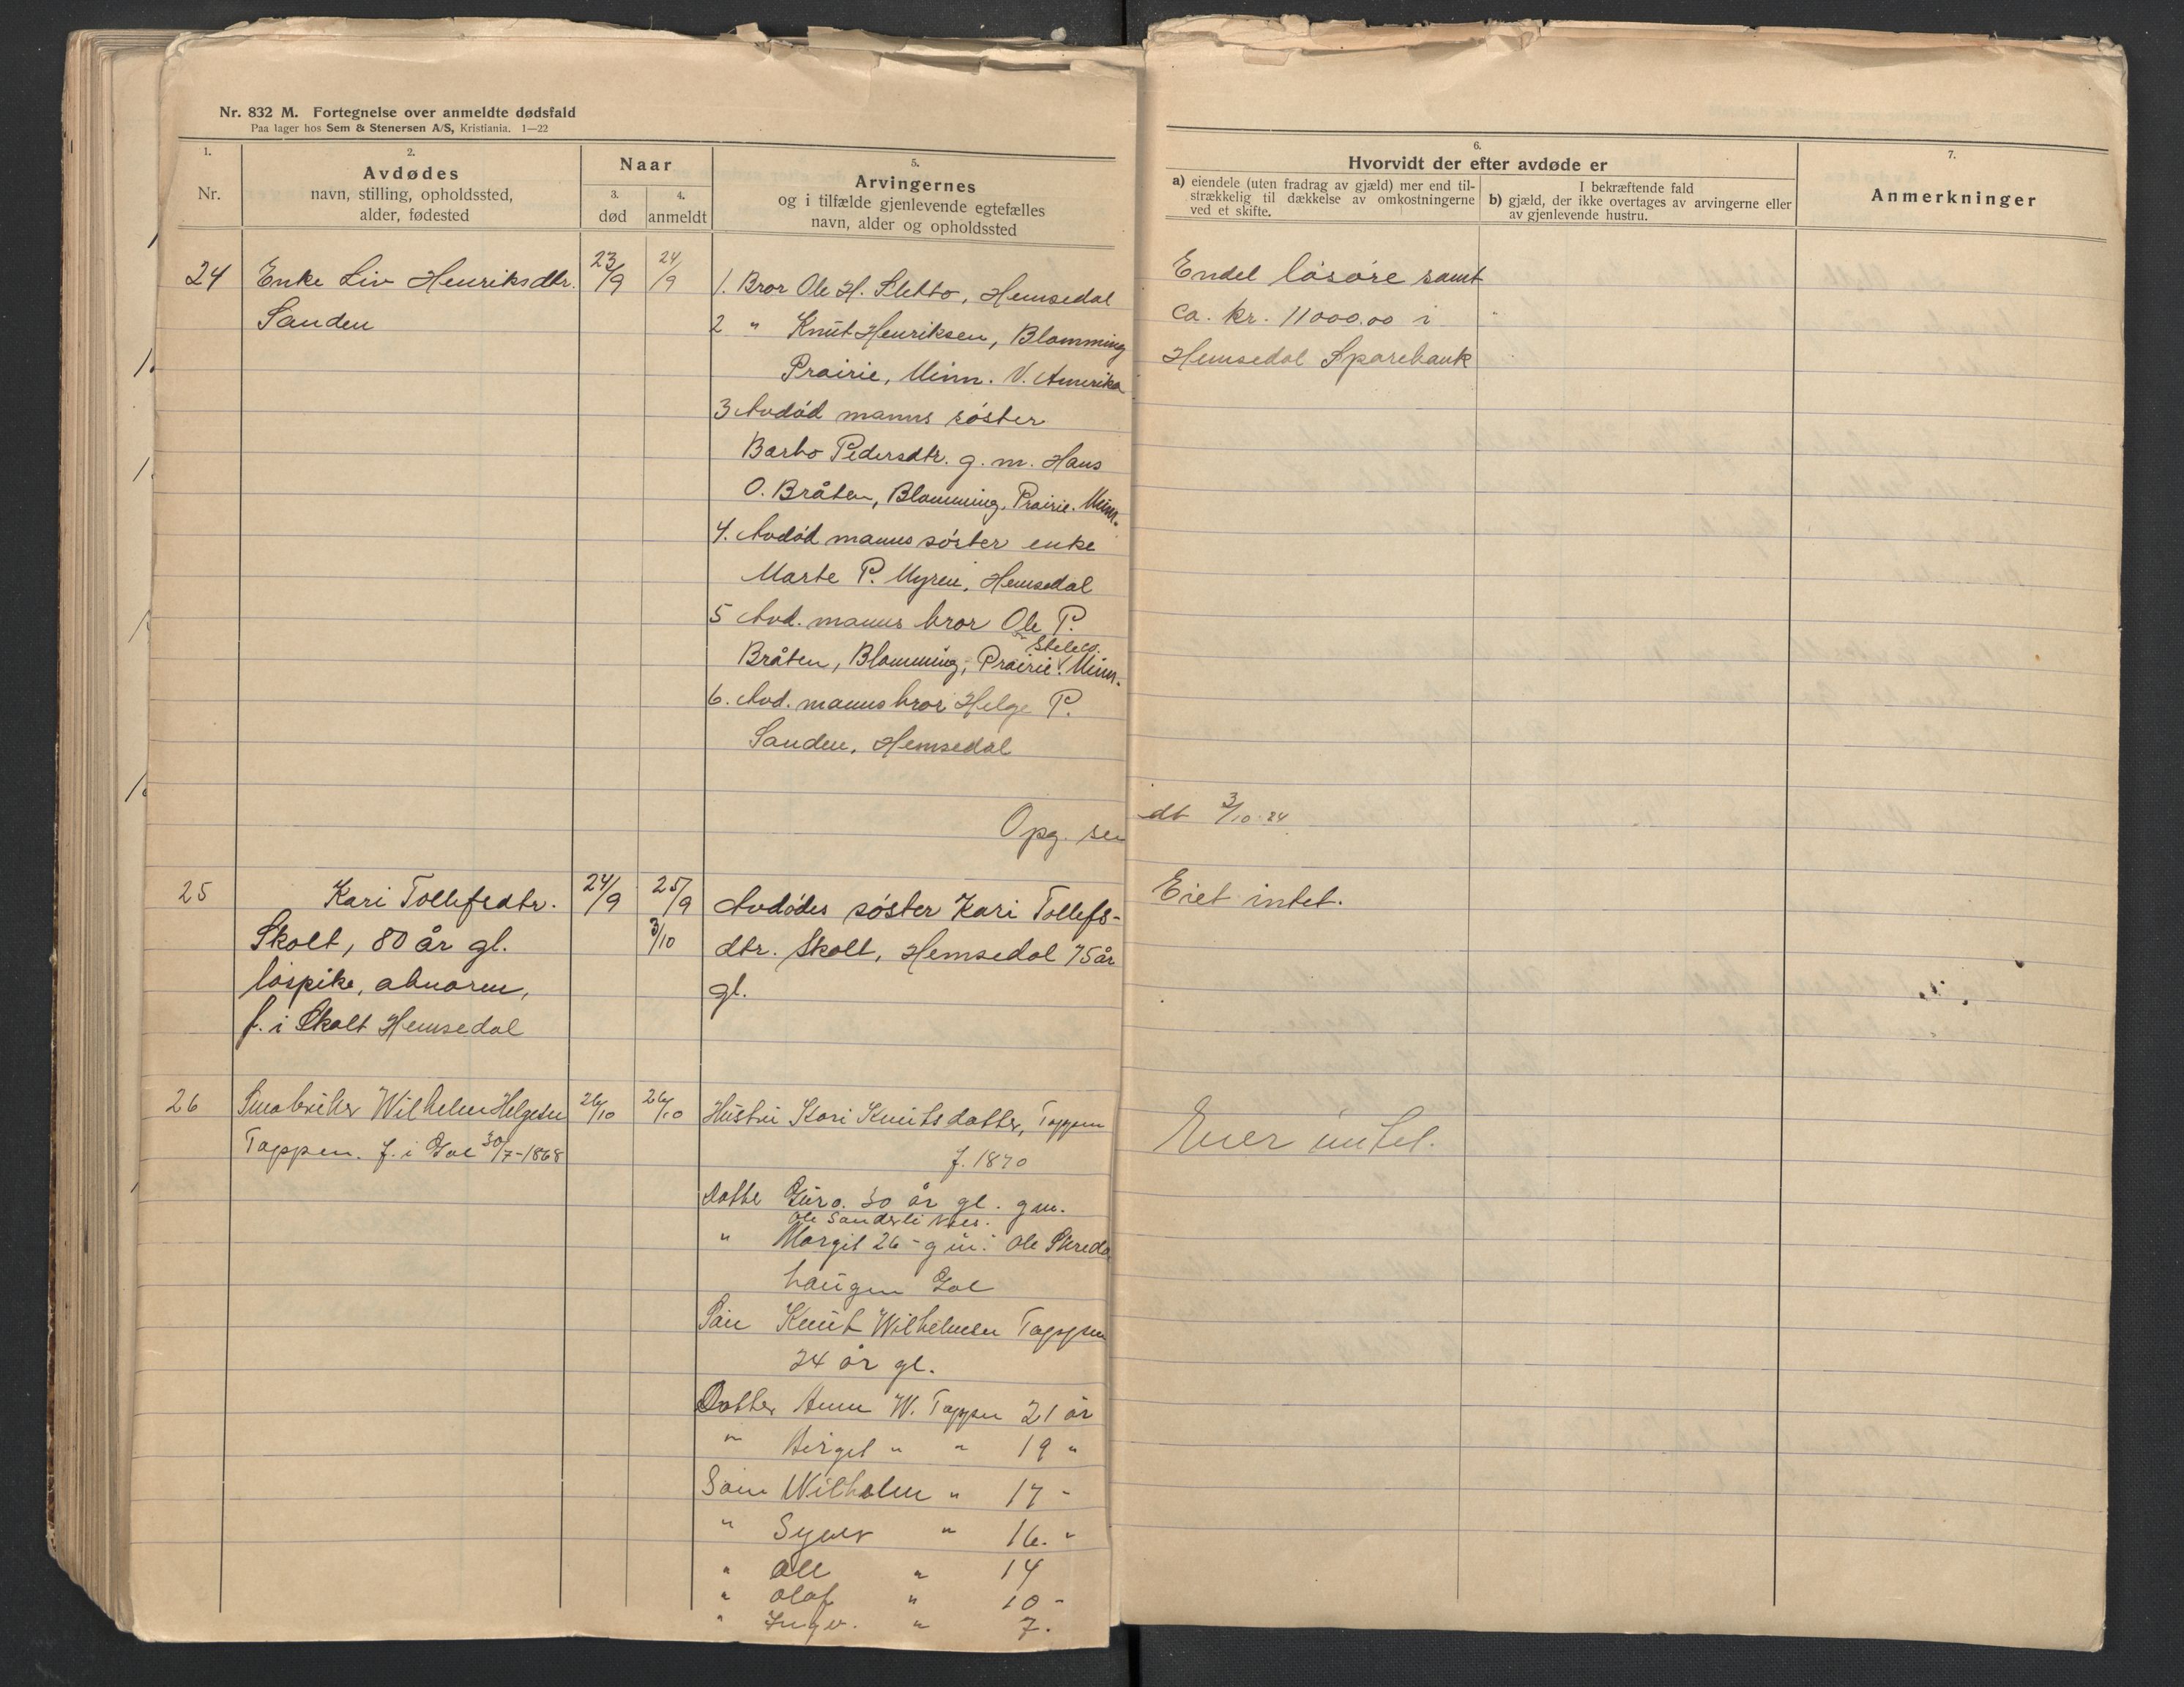 Nr. 832 M. Fortegnelse over anmeldte dødsfald
Paa lager hos Sem & Stenersen A/S, Kristiania. 1—22
1.
Nr.
2.
Avdødes
navn, stilling, opholdssted,
alder, fødested
Naar
3.
død
4.
anmeldt
5.
Arvingernes
og i tilfælde gjenlevende egtefælles
navn, alder og opholdssted
6.
Hvorvidt der efter avdøde er
a) eiendele (uten fradrag av gjæld) mer end til-
strækkelig til dækkelse av omkostningerne
ved et skifte.
I bekræftende fald
b) gjæld, der ikke overtages av arvingerne eller
av gjenlevende hustru.
7.
Anmerkninger
24
Enke Liv Henriksdtr.
Sanden
23/9
24/9
1. Bror Ole H. Sletto, Hemsedal
2 " Knut Henriksen, Blomming
Prairie, Minn. N. Amerika
3 Avdød manns søster
Barbo Pedersdtr. g. m. Hans
O. Bråten, Blomming, Prairie. Minn.
4. Avdød manns søster enke
Marte P. Myren, Hemsedal
5 Avd. manns bror Ole P.
Bråten, Blomming, Prairie. Minn.
6. Avd. manns bror Helge P.
Sanden, Hemsedal
Endel løsøre samt
ca. kr. 11000.00 i
Hemsedal Sparebank
Opg. sendt 3/10.24
25
Kari Tollefsdtr.
Skolt, 80 år gl.
løspike, abnorm,
f. i Skolt Hemsedal
24/9
25/9
3/10
Avdødes søster Kari Tollefs-
dtr. Skolt, Hemsedal 75 år
gl.
Eiet intet.
26
Småbruker Wilhelm Helgesen
Toppen. f. i Gol 30/7-1868
26/10
26/10
Hustru Kari Knutsdatter, Toppen
f. 1870
Datte Guro. 30 år gl. gm.
Ole Sanderli
" Margit 26 - gm. Ole Skreda
haugen Gol
Søn Knut Wilhelmsen Toppen
24 år gl.
Datter Anne W. Toppen 21 år
" Birgit " " 19 "
Søn Wilhelm " 17 -
" Syver " 16. "
" Ole " 14
" Olaf " 10 -
" Ingv. " 7.
Eier intet.